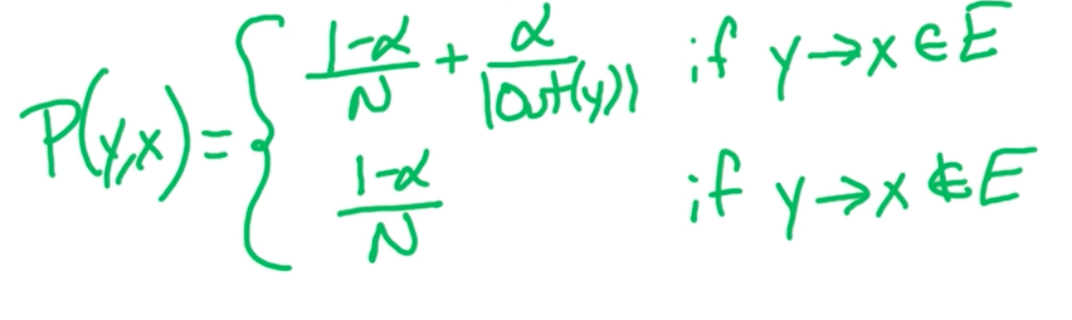 P(y,x) = { (1-α)/N + α/|Out(y)| if y→x ∈ E
(1-α)/N if y→x ∉ E